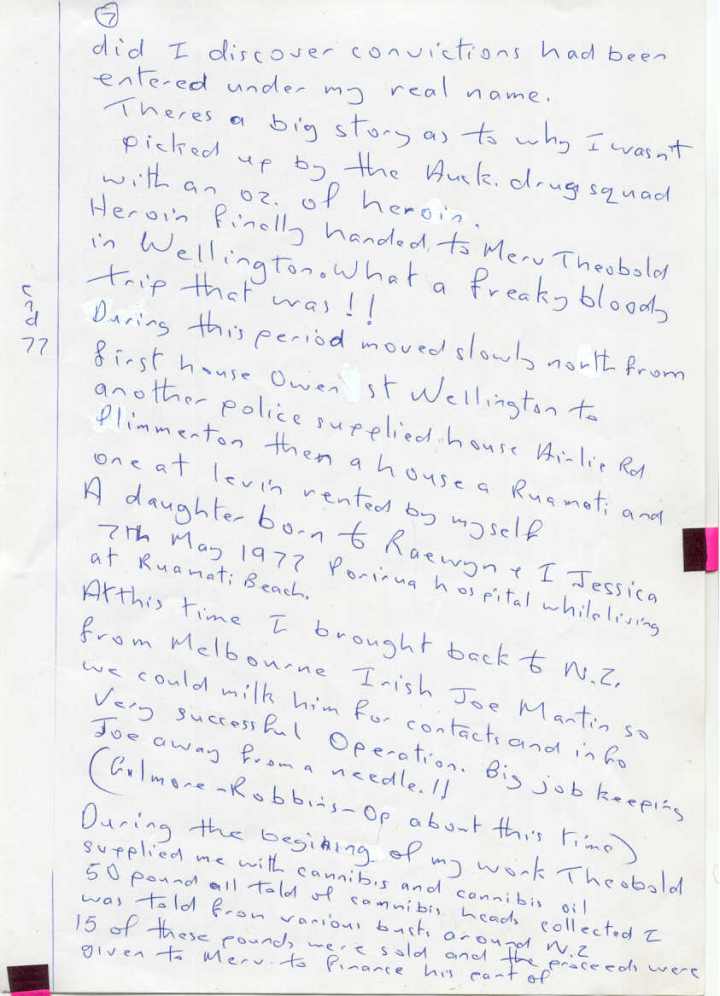 7
did I discover convictions had been
entered under my real name.
Theres a big story as to why I wasnt
picked up by the Auck. drug squad
with an oz. of heroin.
Heroin finally handed to Merv Theobold
in Wellington. What a freaky bloody
trip that was !!
During this period moved slowly north from
first house Owen st Wellington to
another police supplied house Airlie Rd
Plimmerton then a house a Ruamoti and
one at levin rented by myself
A daughter born to Raewyn & I Jessica
7th May 1977 Porirua hospital while living
at Ruamati Beach.
At this time I brought back to N.Z.
from Melbourne Irish Joe Martin so
we could milk him for contacts and info
Very successful Operation. Big job keeping
Joe away from a needle.!!
(Gilmore-Robbins-Op about this time)
During the begining of my work Theobold
supplied me with cannibis and cannibis oil
50 pound all told of cannibis heads collected I
was told from various busts around N.Z
15 of these pounds were sold and the proceeds were
given to Merv. to finance his part of
77